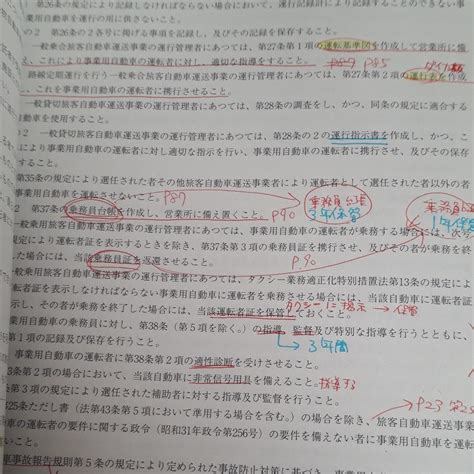 条第2項の規定により記録しなければならない場合において、運行記録計により記録することのできない事
業用自動車を運行の用に供さないこと。
の2 第26条の2各号に掲げる事項を記録し、及びその記録を保存すること。
一般乗合旅客自動車運送事業の運行管理者にあつては、第27条第1項の運転基準図を作成して営業所に備
え、これにより事業用自動車の運転者に対し、適切な指導をすること。 P85
路線定期運行を行う一般乗合旅客自動車運送事業の運行管理者にあつては、第27条第2項の運行表を作成
し、これを事業用自動車の運転者に携行させること。
一般貸切旅客自動車運送事業の運行管理者にあつては、第28条の調査をし、かつ、同条の規定に適合する
自動車を使用すること。
2 一般貸切旅客自動車運送事業の運行管理者にあつては、第28条の2の運行指示書を作成し、かつ、こ
により事業用自動車の運転者に対し適切な指示を行い、事業用自動車の運転者に携行させ、及びその保存
すること。
第35条の規定により選任された者その他旅客自動車運送事業者により運転者として選任された者以外の者
事業用自動車を運転させないこと。 P87
2 第37条の乗務員台帳を作成し、営業所に備え置くこと。 P90
乗務員台帳
3年保管
乗務員証
1年保管
一般乗用旅客自動車運送事業の運行管理者にあつては、事業用自動車の運転者が乗務する場合には、次号
規定により運転者証を表示するときを除き、第37条第3項の乗務員証を携行させ、及びその者が乗務を終
した場合には、当該乗務員証を返還させること。 P.90
一般乗用旅客自動車運送事業の運行管理者にあつては、タクシー業務適正化特別措置法第13条の規定によ
運転者証を表示しなければならない事業用自動車に運転者を乗務させる場合には、当該自動車に運転者証
示し、その者が乗務を終了した場合には、当該運転者証を保管しておくこと。 タクシーに指示 → 保管
事業用自動車の乗務員に対し、第38条(第5項を除く。)の指導、監督及び特別な指導を行うとともに、
第1項の記録及び保存を行うこと。 → 3年間
事業用自動車の運転者に第38条第2項の適性診断を受けさせること。
3条第2項の場合において、当該自動車に非常信号用具を備えること。 指導する
第3項の規定により選任された補助者に対する指導及び監督を行うこと。
25条ただし書(法第43条第5項において準用する場合を含む。)の場合を除き、旅客自動車 P23 第2
の運転者の要件に関する政令(昭和31年政令第256号)の要件を備えない者に事業用自動車を運転
いこと。
車事故報告規則第5条の規定により定められた事故防止対策に基づき、事業